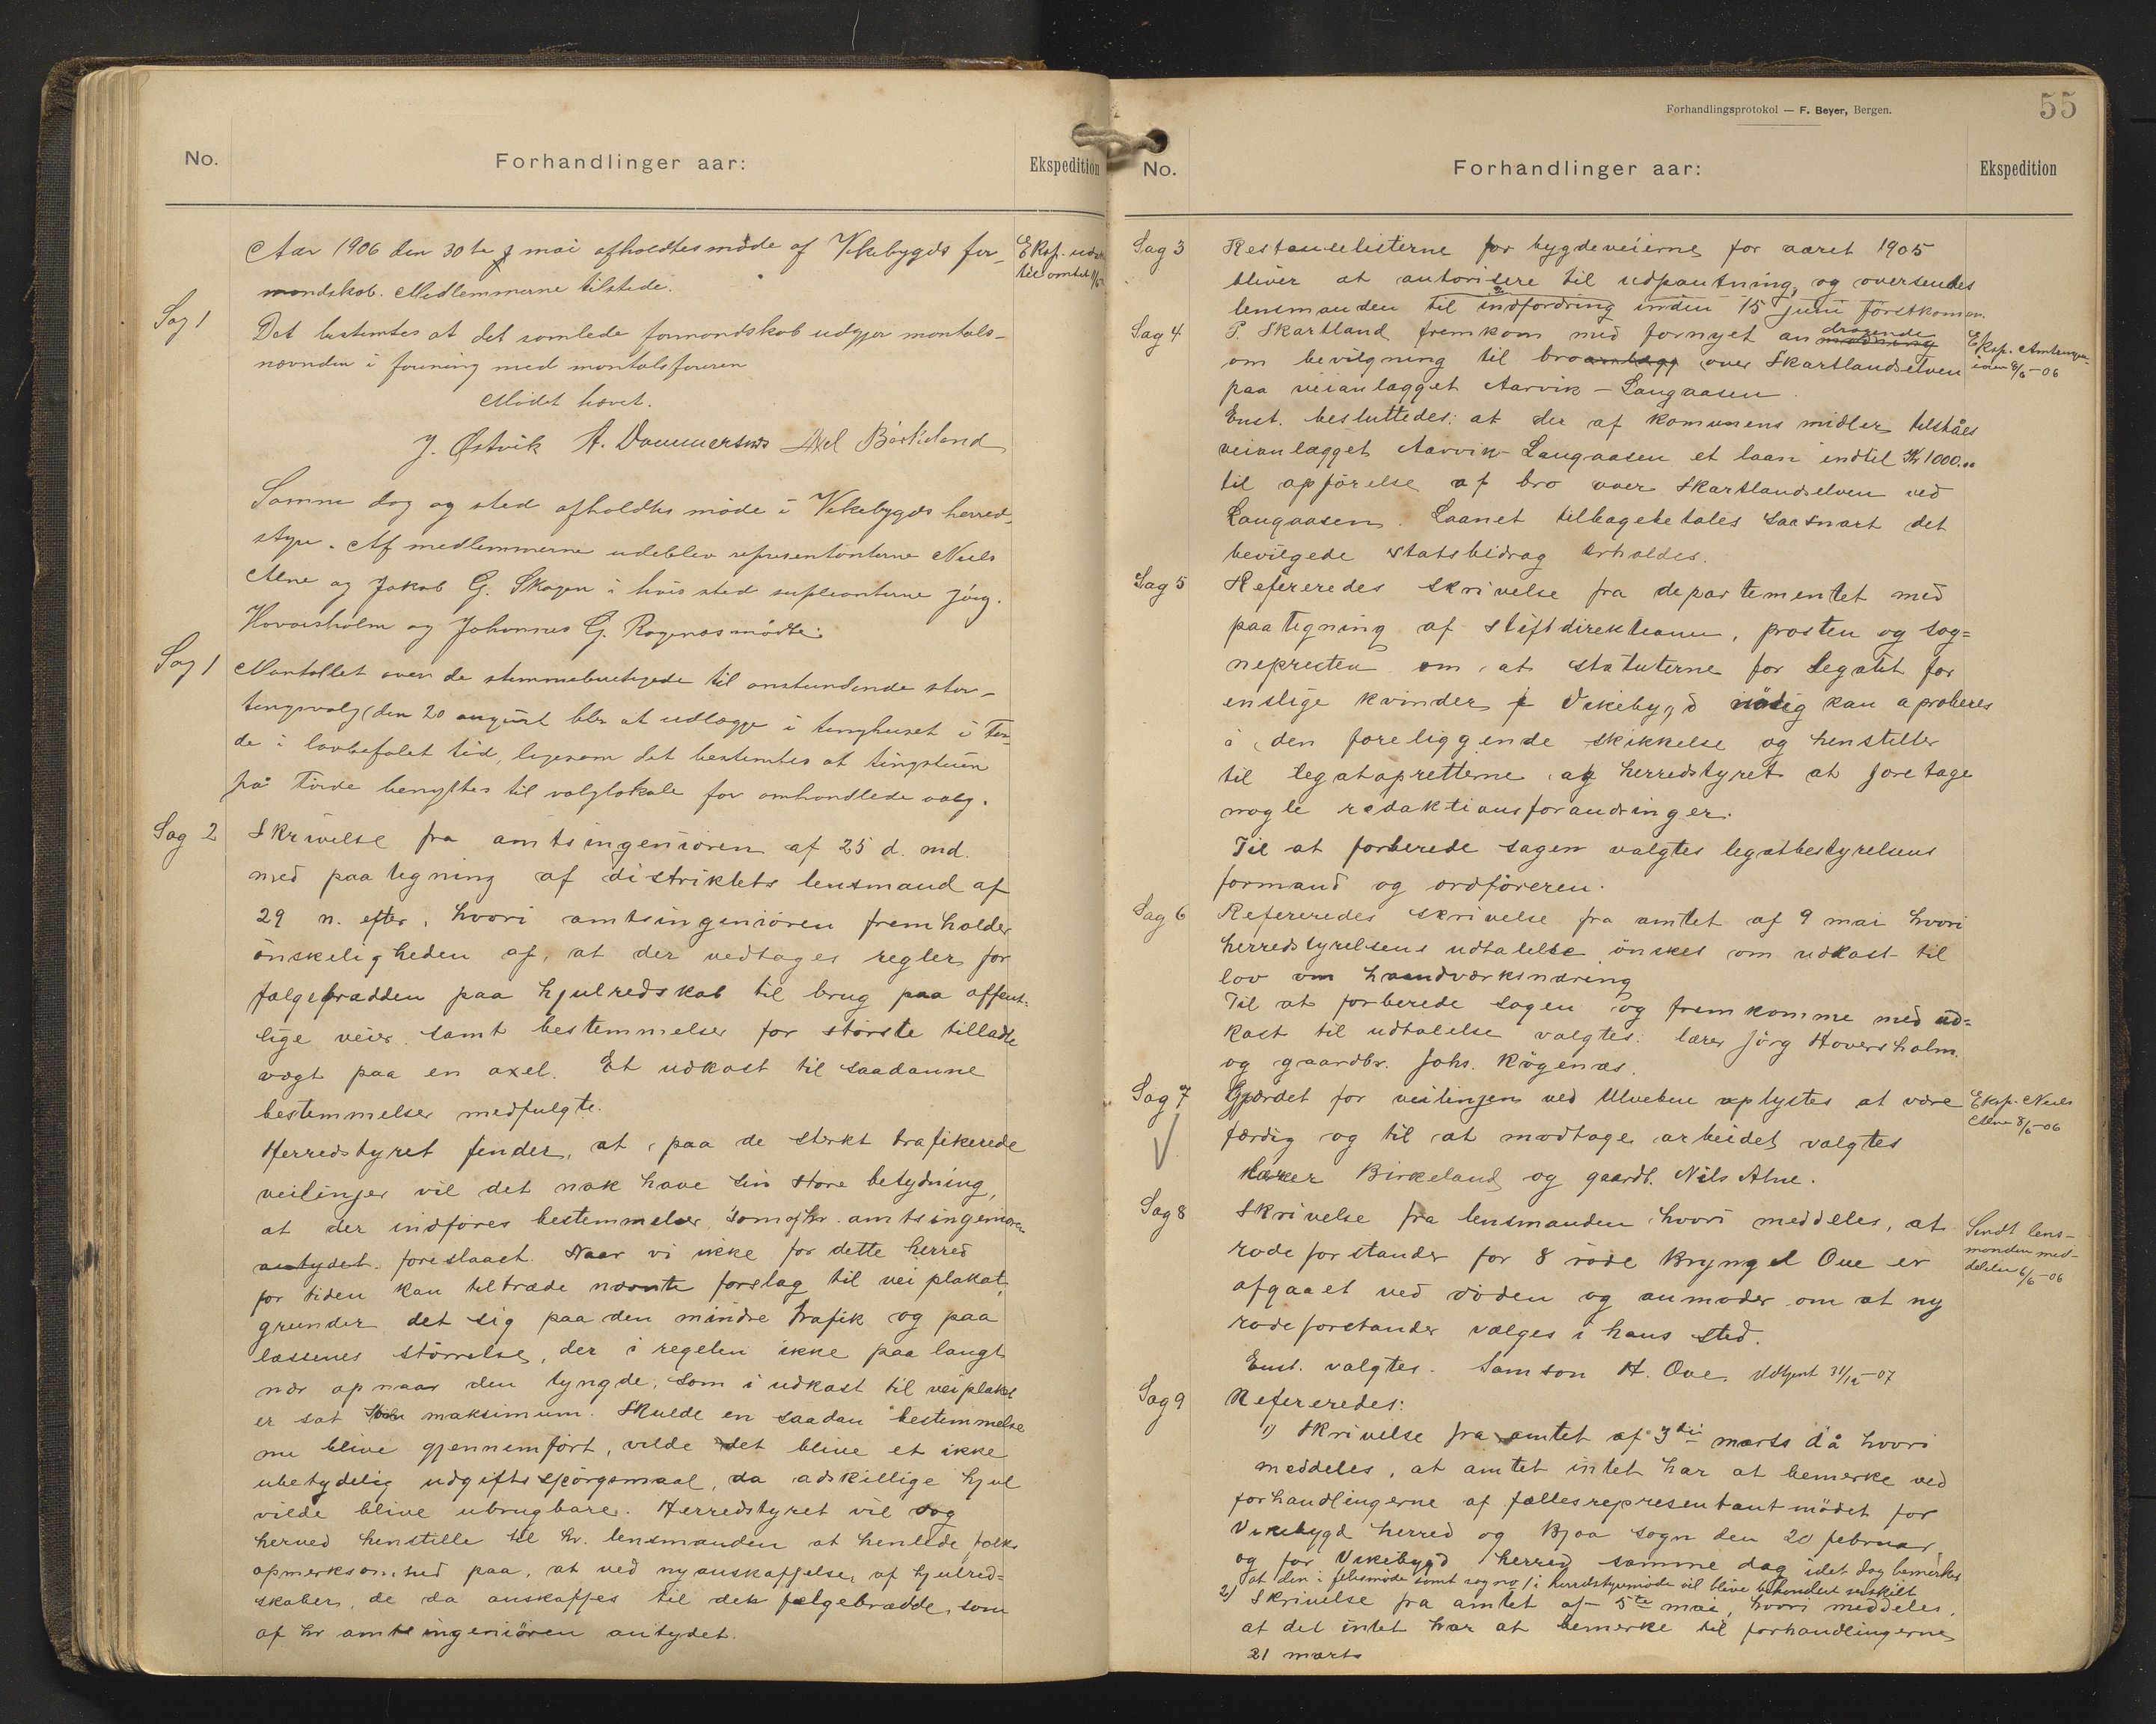 No.
Forhandlinger aar:
Ekspedition
Aar 1906 den 30te mai afholdtes møde af Vikebygds for-
mandskab. Medlemmerne tilstede.
Eksp. udsk.
til amtet
Sag 1
Det bestemtes at det samlede formandskab udgjør mantals-
nævnden i forening med mantalsføreren
Mødet hævet.
J. Østvik A. Dommersnes Axel Birkeland
Samme dag og sted afholdtes møde i Vikebygds herred-
styre. Af medlemmerne udeblev representanterne Niels
Alne og Jakob G. Skogen i hvis sted supleanterne Jörg.
Hovdesholm og Johannes G. Røgenæs mødte.
Sag 1
Mantallet over de stemmeberetigede til anstundende stor-
tingsvalg (den 20 august blir at udlægge i tinghuset i Tør-
de i lovbefalet tid, ligesom det bestemtes at tingstuen
på Tørde benyttes til valglokale for omhandlede valg.
Sag 2
Skrivelse fra amtsingeniören af 25 d. md.
med paategning af distriktets lensmand af
29 n. efter, hvori amtsingeniören fremholder
önskeligheden af, at der vedtages regler for
fælgebrædden paa hjulredskab til brug paa offent-
lige veier samt bestemmelser for störste tilladte
vægt paa en axel. Et udkast til saadanne
bestemmelser medfulgte.
Herredstyret finder, at paa de sterkt trafikerede
veilinjer vil det nok have sin store betydning,
at der indföres bestemmelser, som af hr. amtsingeniören
antydet foreslaaet. Naar vi ikke for dette herred
for tiden kan tiltræde nævnte forslag til vei plakat,
grunder det sig paa den mindre trafik og paa
læssenes störrelse, der i regelen ikke paa langt
nær opnaar den tyngde, som i udkast til veiplakat
er sat som maksimum. Skulde en saadan bestemmelse
nu blive gjennemfört, vilde det blive et ikke
ubetydelig udgiftsspörgsmaal, da adskillige hjul
vilde blive ubrugbare. Herredstyret vil dog
herved henstille til hr. lensmanden at henlede folks
opmerksomhed paa, at ved nyanskaffelse af hjulred-
skaber, de da anskaffes til den fælgebrædde, som
af hr amtsingeniören antydet.
Forhandlingsprotokol — F. Beyer, Bergen.
55
No.
Forhandlinger aar:
Ekspedition
Sag 3
Restanselisterne for bygdeveierne for aaret 1905
bliver at autorisere til udpantning, og oversendes
lensmanden til indfordring inden 15 juni förstkomm.
Sag 4
P. Skartland fremkom med fornyet andragende
om bevilgning til bro over Skartlandselven
paa veianlægget Aarvik – Langaasen.
Eksp. Amtsingen-
iören 8/6-06
Enst. besluttedes: at der af komunens midler tilståes
veianlægget Aarvik-Langaasen et laan indtil Kr 1000.00
til opförelse af bro over Skartlandselven ved
Langaasen. Laanet tilbagebetales saasnart det
bevilgede statsbidrag erholdes.
Sag 5
Refereredes skrivelse fra departementet med
paategning af stiftdirektionen, prosten og sog-
nepresten om at statuterne for Legatet for
enslige kvinder i Vikebygd kan aproberes
i den foreliggende skikkelse og henstiller
til legatopretterne og herredstyret at foretage
nogle redaktionsforandringer.
Til at forberede sagen valgtes legatbestyrelsens
formand og ordföreren.
Sag 6
Refereredes skrivelse fra amtet af 9 mai hvori
herredstyrelsens udtalelse önskes om udkast til
lov om haandværksnæring
Til at forberede sagen og fremkomme med ud-
kast til udtalelse valgtes: lærer Jörg Hoversholm
og gaardbr. Johs. Rögenæs.
Sag 7
Gjærdet for veilinjen ved Ulveben oplystes at være
færdig og til at modtage arbeidet valgtes
Birkeland og gaardb. Nils Alne.
Eksp. Niels
Alne 8/6-06
Sag 8
Skrivelse fra lensmanden hvori meddeles, at
rodeforstander for 8 rode Bryngel Ove er
afgaaet ved döden og anmoder om at ny
rodeforstander vælges i hans sted.
Sendt lens-
manden med-
delelse 6/6-06
Enst. valgtes. Samson H. Ove. Udtjent 31/12-07
Sag 9
Refereredes:
1) Skrivelse fra amtet af 3die marts då hvori
meddeles, at amtet intet har at bemerke ved
forhandlingerne af fællesrepresentantmödet for
Vikebygd herred og Bjoa sogn den 20 februar
og for Vikebygd herred samme dag idet dog bemerkes
at den i fellesmøde samt sag no 1 i herredstyremøde vil blive behandlet serskilt
2) Skrivelse fra amtet af 5te mai, hvori meddeles,
at det intet har at bemerke til forhandlingerne
21 marts